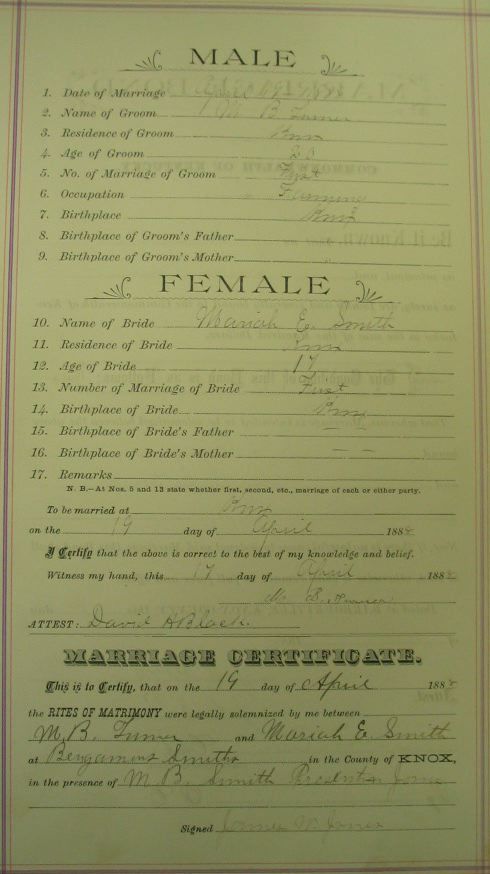 MALE
1. Date of Marriage
2. Name of Groom M B Turner
3. Residence of Groom Knox
4. Age of Groom 20
5. No. of Marriage of Groom First
6. Occupation Farming
7. Birthplace Knox
8. Birthplace of Groom's Father
9. Birthplace of Groom's Mother "
FEMALE
10. Name of Bride Mariah E. Smith
11. Residence of Bride Knox
12. Age of Bride 17
13. Number of Marriage of Bride First
14. Birthplace of Bride Knox
15. Birthplace of Bride's Father — —
16. Birthplace of Bride's Mother — —
17. Remarks
N. B.—At Nos. 5 and 13 state whether first, second, etc., marriage of each or either party.
To be married at Knox
on the 19 day of April 188
I Certify that the above is correct to the best of my knowledge and belief.
Witness my hand, this 17 day of April 188
M. B. Turner
ATTEST: David H Black.
MARRIAGE CERTIFICATE.
This is to Certify, that on the 19 day of April 188
the RITES OF MATRIMONY were legally solemnized by me between
M. B. Turner and Mariah E. Smith
at Bengamins Smiths in the County of KNOX,
in the presence of M. B. Smith
Signed James W. Jones